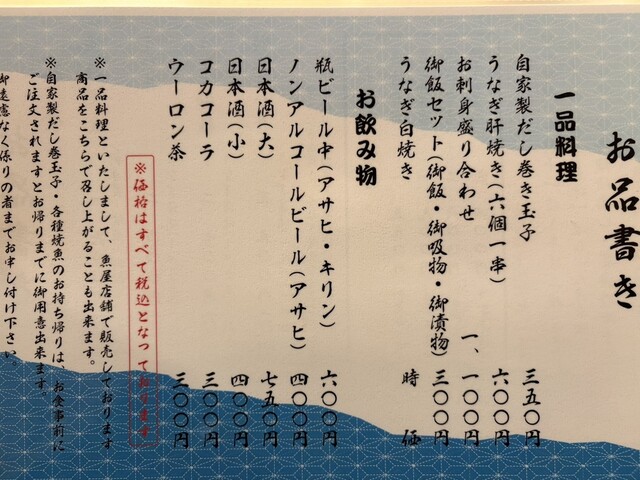 お品書き
一品料理
自家製だし巻き玉子 三五〇円
うなぎ肝焼き(六個一串) 六〇〇円
お刺身盛り合わせ 一、一〇〇円
御飯セット(御飯・御吸物・御漬物) 三〇〇円
うなぎ白焼き 時価
お飲み物
瓶ビール中(アサヒ・キリン) 六〇〇円
ノンアルコールビール(アサヒ) 四〇〇円
日本酒(大) 七五〇円
日本酒(小) 四〇〇円
コカコーラ 三〇〇円
ウーロン茶 三〇〇円
※価格はすべて税込となっております
※一品料理といたしまして、魚屋店舗で販売しております
商品をこちらで召し上がることも出来ます。
※自家製だし巻玉子・各種焼魚のお持ち帰りは、お食事前に
ご注文されますとお帰りまでに御用意出来ます。
御遠慮なく係りの者までお申し付け下さい。